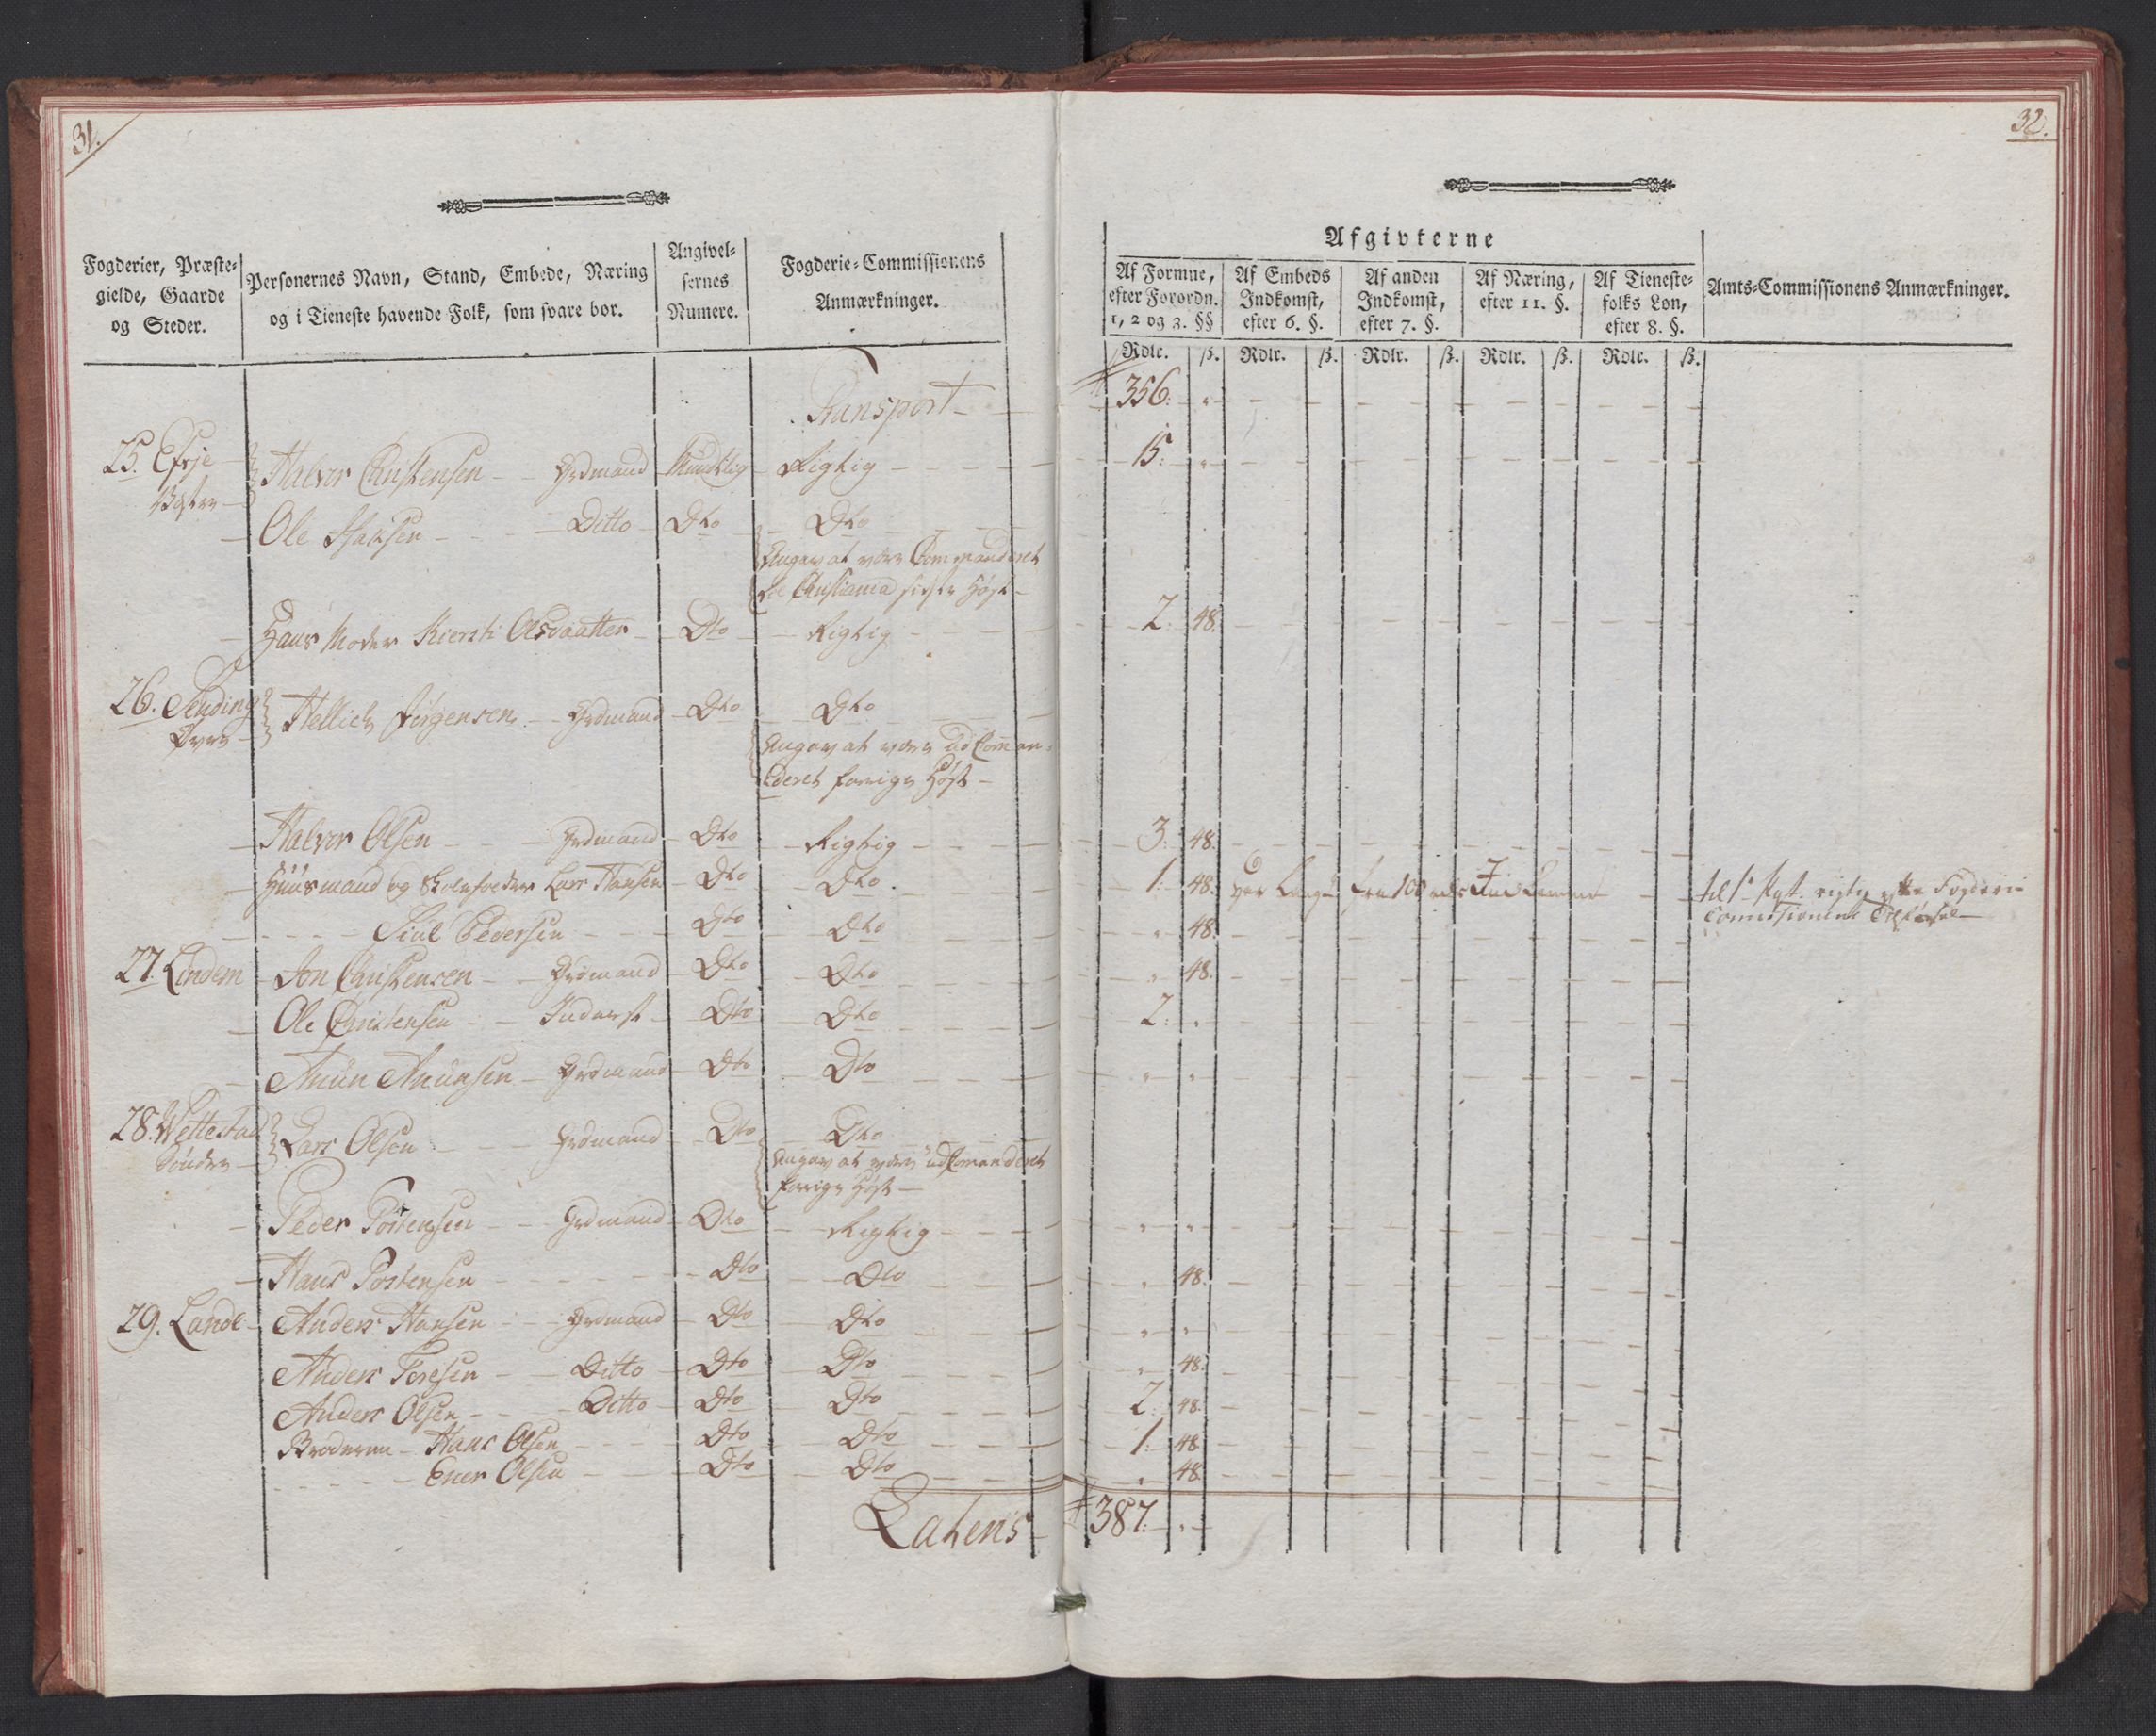 31.
Fogderier, Præste-
gielde, Gaarde
og Steder.
Personernes Navn, Stand, Embede, Næring
og i Tieneste havende Folk, som svare bør.
Angivel-
sernes
Numere.
Fogderie-Commissionens
Anmærkninger.
Transport
25. Efsje Halvor Christensen Grdmand Mundtlig Rigtig
Ole Hansen Ditto Dto Dto
Angav at være Commanderet
til Christiania sidste Høst
Hans Moder Kiersti Olsdaatter Dto Rigtig
26. Hellich Jørgensen Grdmand Dto Dto
Øvre Angav at være ud Comman-
deret forrige Høst
Halvor Olsen Grdmand Dto Rigtig
Huusmand og Skoleholder Lars Hansen Dto Dto
Siul Pedersen Dto Dto
27. Lindem Jon Christensen Grdmand Dto Dto
Ole Christensen Inderst Dto Dto
Anun Anunsen Grdmand Dto Dto
28. Wettestad Lars Olsen Grdmand Dto Dto
Søndre Angav at være udComanderet
forrige Høst
Peder Tostensen Grdmand Dto Rigtig
Hans Tostensen Dto Dto
29. Lande Anders Hansen Grdmand Dto Dto
Anders Toresen Ditto Dto Dto
Anders Olsen Ditto Dto Dto
Broderen Hans Olsen Dto Dto
Ener Olsen Dto Dto
Latens
32.
Afgivterne
Af Formue,
efter Forordn.
1, 2 og 3. §§
Af Embeds
Indkomst,
efter 6. §.
Af anden
Indkomst,
efter 7. §.
Af Næring,
efter 11. §.
Af Tieneste-
folks Løn,
efter 8. §.
Amts-Commissionens Anmærkninger.
Rdlr. ß. Rdlr. ß. Rdlr. ß. Rdlr. ß. Rdlr. ß.
356. "
15. "
2. 48.
3. 48.
1. 48.
Commissionens
" 48.
" 48.
2. "
" "
" "
" 48.
" "
" 48.
2. 48.
1. 48
" 48.
387. "